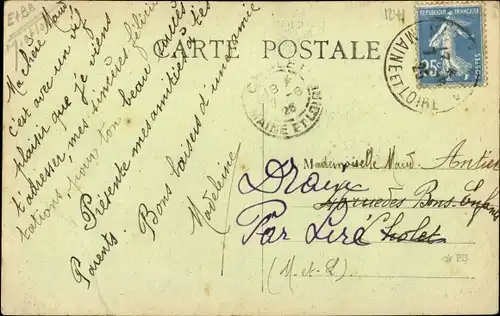 E+BA
1241
CARTE POSTALE
REPUBLIQUE FRANÇAISE
25c
MAINE ET LOIRE
MAINE ET LOIRE
Ma chère Maud
c'est avec un vif
plaisir que Je viens
t'adresser mes sincères félici
tations pour ton beau succès
Présente mes amitiés à tes
Parents. Bons baisers d'une amie
Madeleine
Mademoiselle Maud. Antier
Rue des Bons Enfants
Par Liré Cholet
(M-et-L)
PB